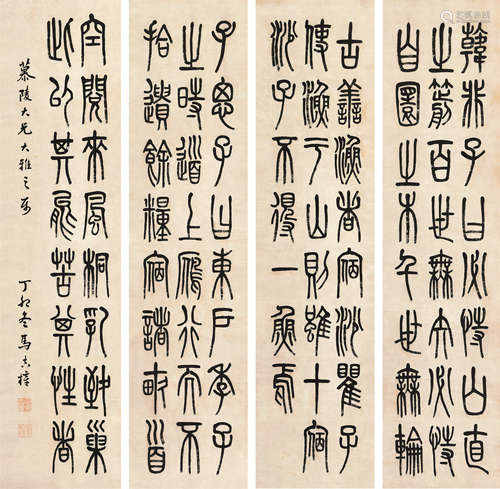 韓非子曰必恃自直
之箭百世無矢必恃
自圜之木千世無輪
古善漁者宿沙瞿子
使漁于山則雖十宿
沙子不得一魚焉
子思子曰東戶季子
之時道上雁行而不
拾遺餘糧宿諸畝首
空閱來風桐乳致巢
此以其能苦其性者
慕陵大兄大雅之屬 丁卯冬馬吉樟